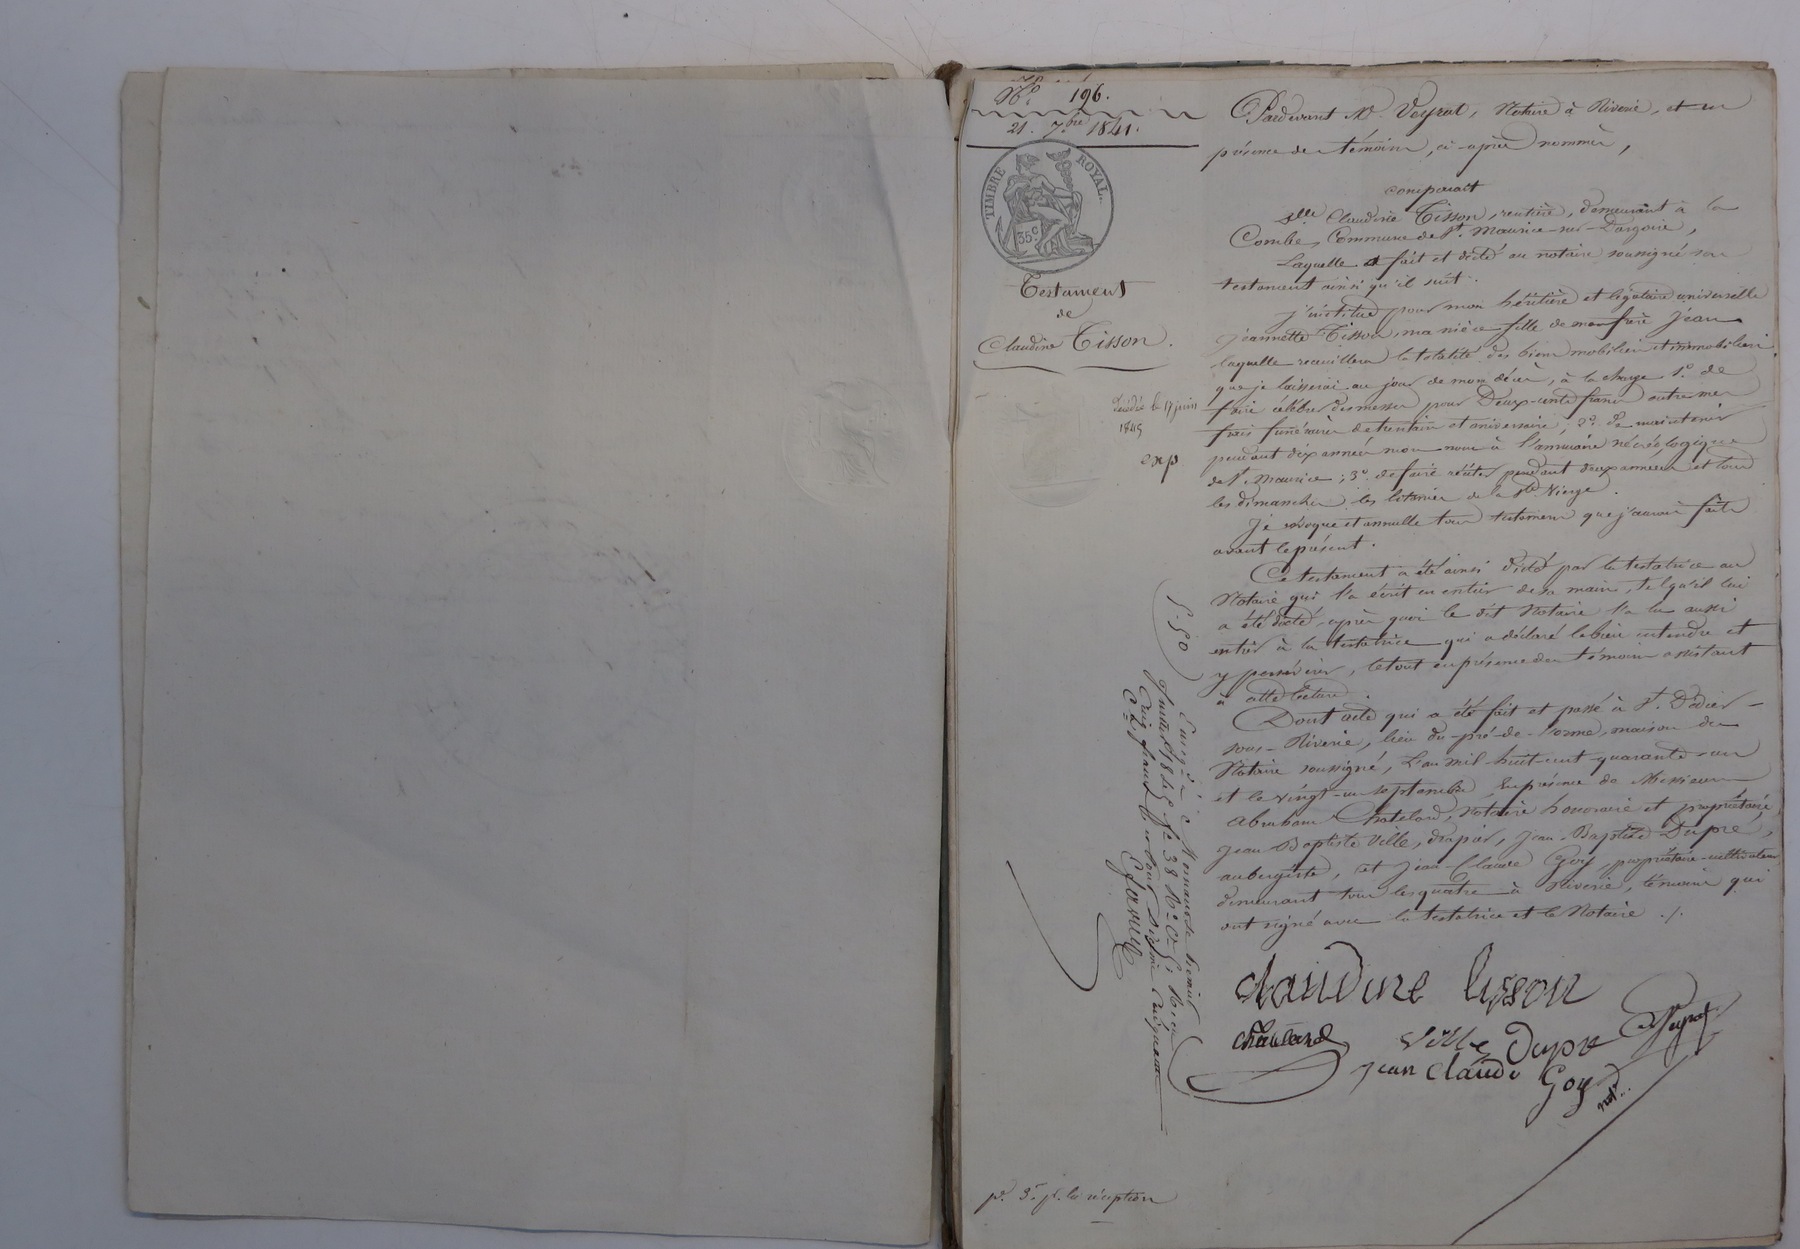 No. 196.
21. 7bre 1841.
TIMBRE ROYAL
35 c
Testament
de
Claudine Tisson.
décédée le 17 juin
1845
exp
Pardevant Me. Veyrat, Notaire à Riverie, et en
présence des témoins, ci-après nommés,
comparait
Dlle Claudine Tisson, rentière, demeurant à la
Combe, Commune de St. Maurice-sur-Dargoire,
Laquelle a fait et dicté au notaire soussigné son
testament ainsi qu'il suit.
J'institue pour mon héritière et légataire universelle
Jeannette Tisson, ma nièce fille de mon frère Jean
laquelle recueillera la totalité des biens mobiliers et immobiliers
que je laisserai au jour de mon décès, à la charge 1o. de
faire célébrer des messes pour Deux-cents francs outre mes
frais funéraires de trentain et aniversaire; 2o. de maintenir
pendant dix années mon nom à l'annuaire nécrologique
de St. Maurice; 3o. de faire réciter pendant deux années et tous
les dimanches les litanies de la Ste. Vierge.
Je révoque et annulle tous testamens que j'aurais faits
avant le présent.
Ce testament a été ainsi dicté par la testatrice au
Notaire qui l'a écrit en entier de sa main, tel qu'il lui
a été dicté, après quoi le dit Notaire l'a lu aussi
entier à la testatrice qui a déclaré le bien entendre et
y persévérer, le tout en présence des témoins assistant
à cette lecture.
Dont acte qui a été fait et passé à St. Didier-
sous-Riverie, lieu du-pré-de-l'orme, maison du
Notaire soussigné, L'an mil-huit-cent-quarante-un
et le vingt-un septembre, En présence de Messieurs
Abraham Chatelard, Notaire honoraire et propriétaire,
Jean Baptiste Ville, drapier, Jean-Baptiste Dupré,
aubergiste, et Jean-Claude Goy, propriétaire-cultivateur
demeurant tous les quatre à Riverie, témoins qui
ont signé avec la testatrice et le Notaire ./.
claudine tisson
Chatelard
Ville Dupré
Veyrat
jean claude Goy
not.
5.50
Enregistré à Mornant le
1845 fo 38 Ro Co 5. Reçu
Cinq francs
p. 3 f. la réception